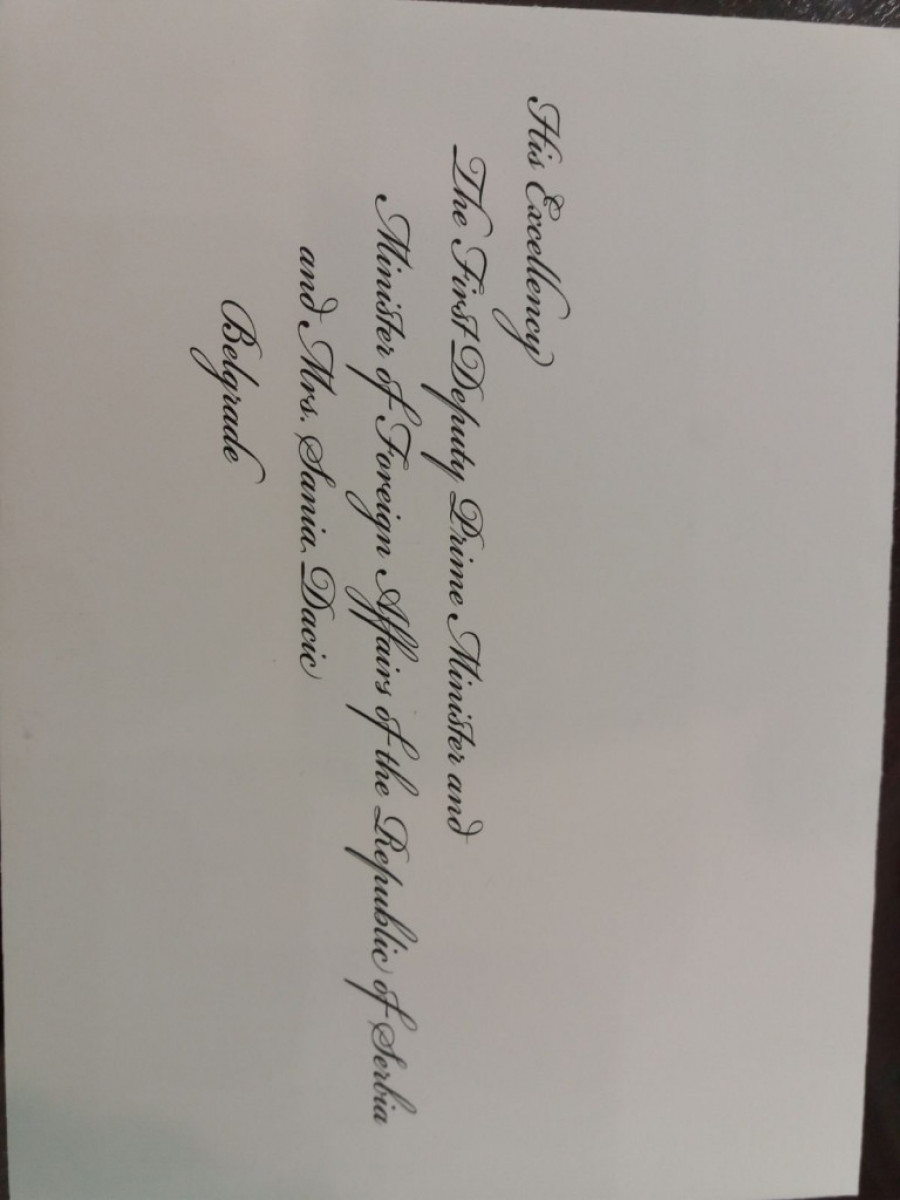 His Excellency
The First Deputy Prime Minister and
Minister of Foreign Affairs of the Republic of Serbia
and Mrs. Sania Dacic
Belgrade